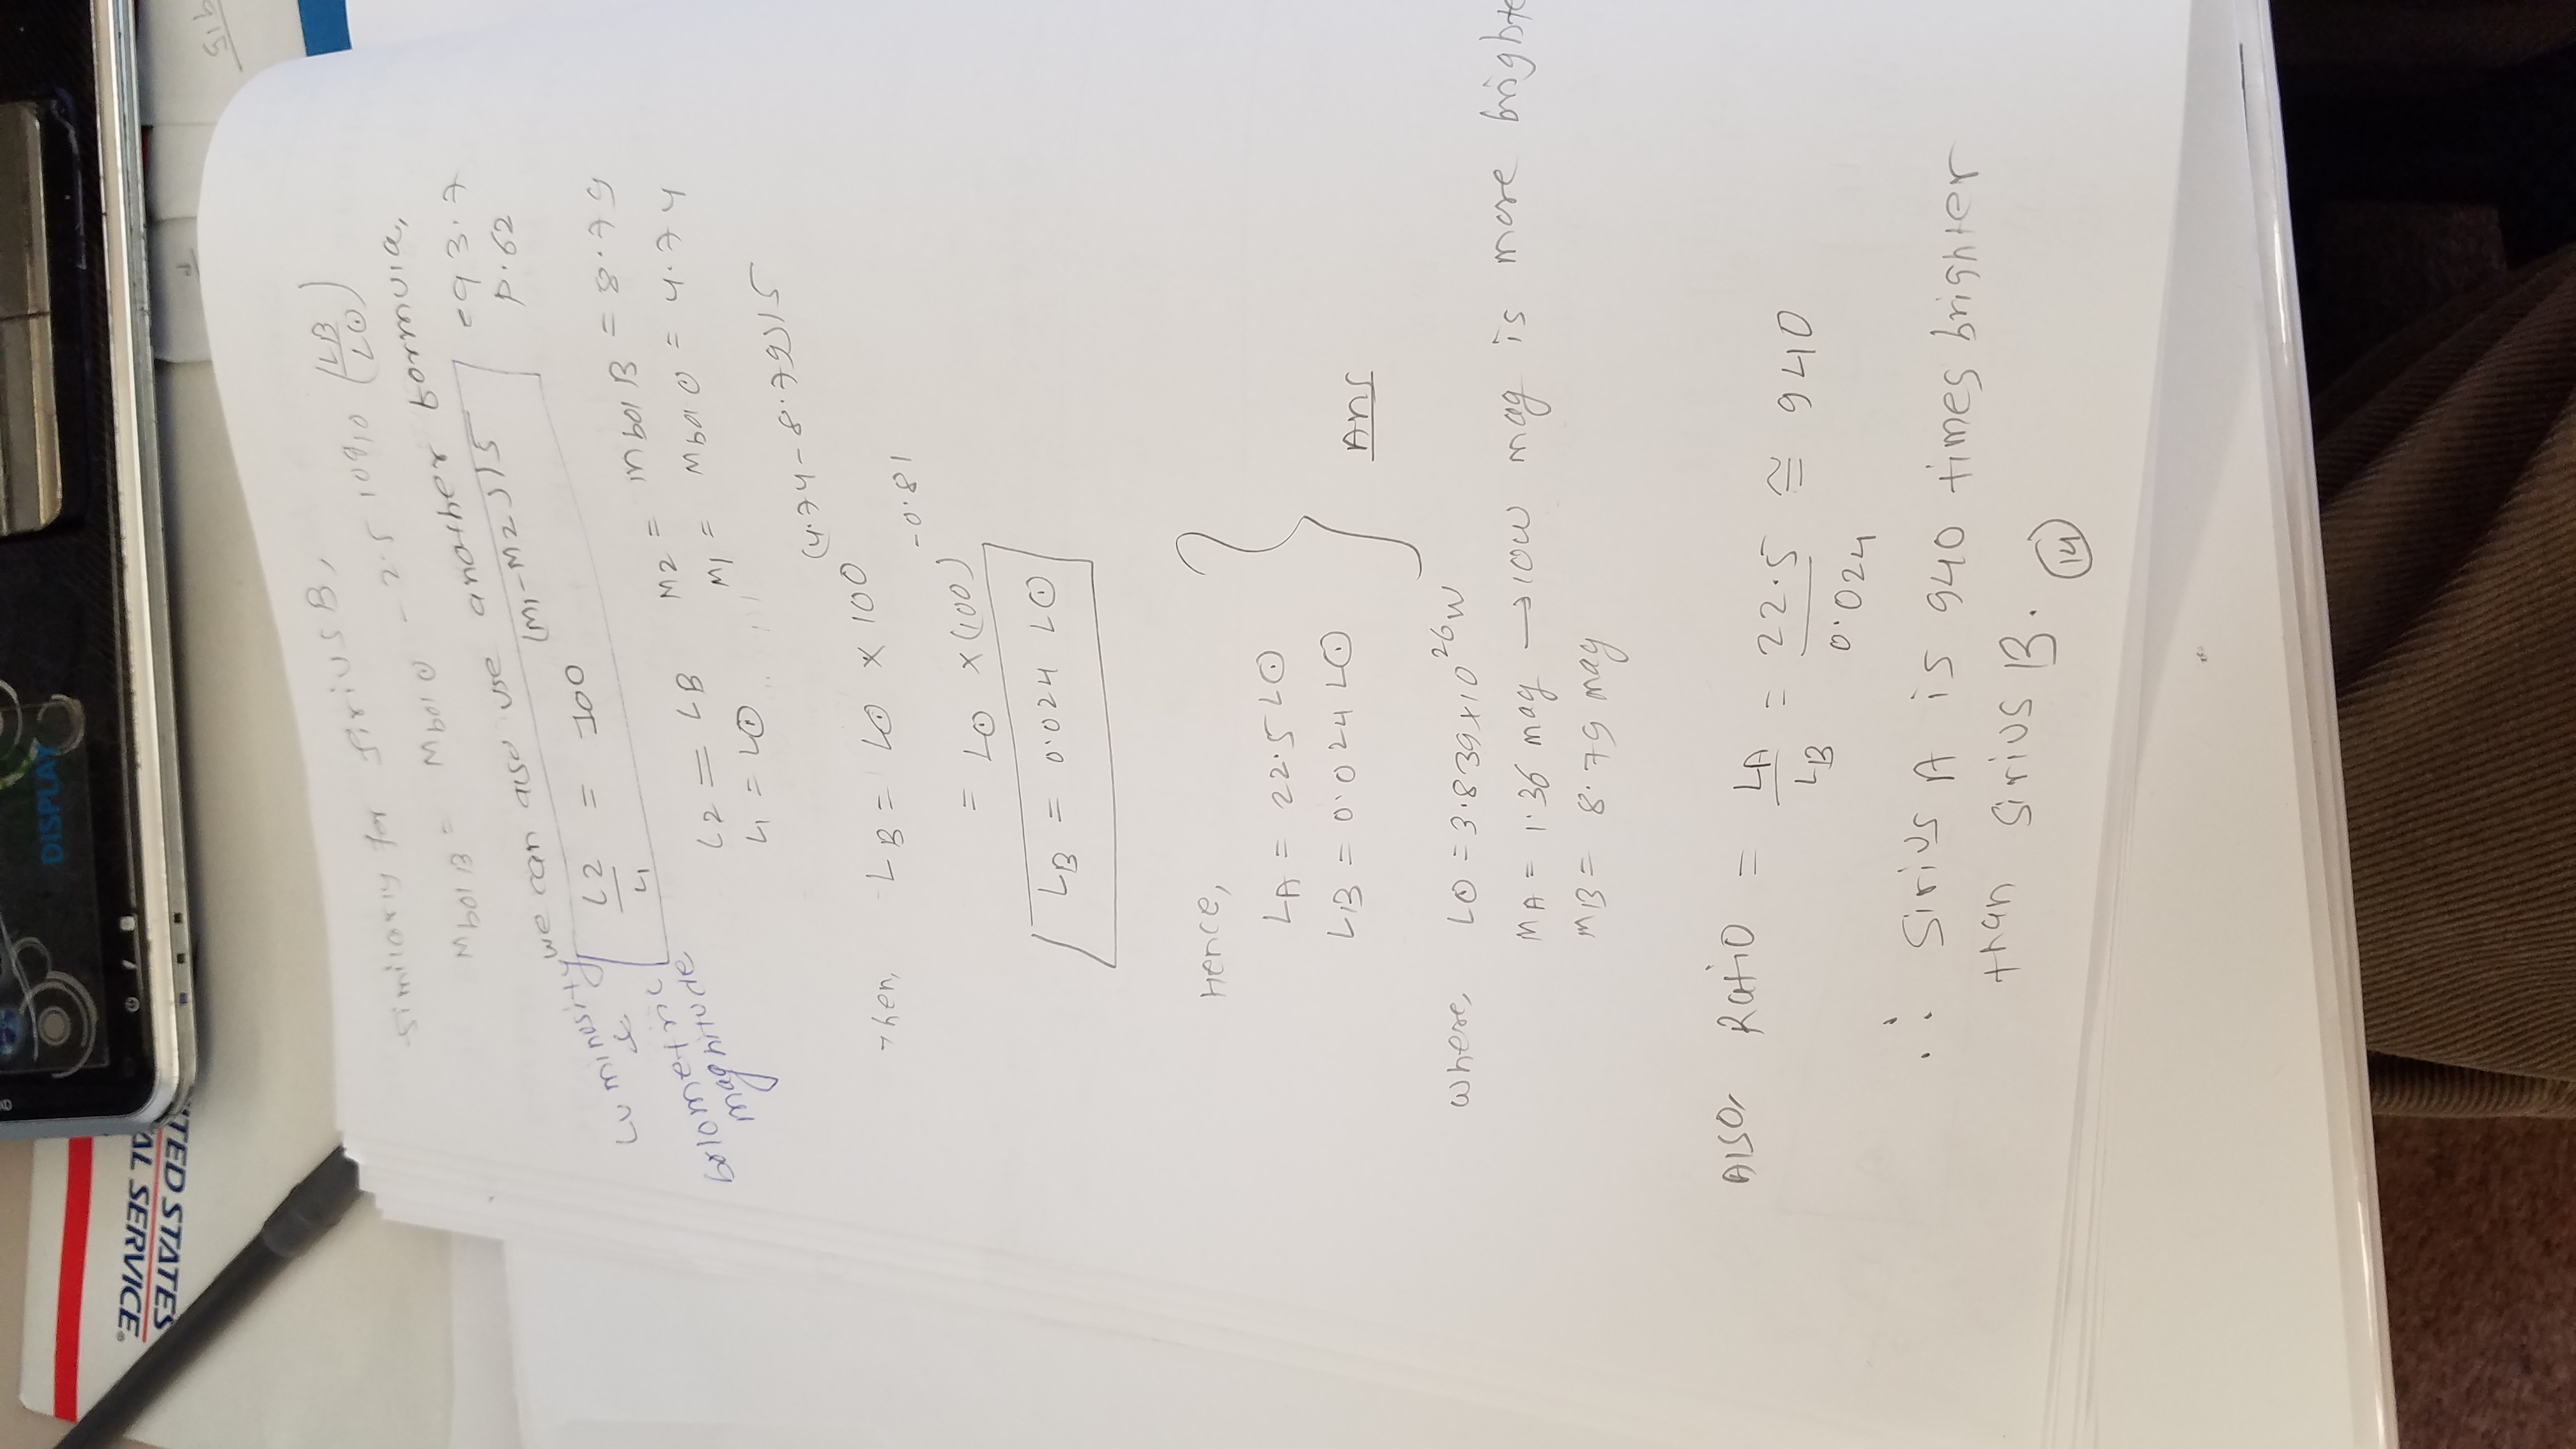 DISPLAY
UNITED STATES
AL SERVICE®
Similarly for SiriusB,
Mbol B = Mbol ⊙ - 2.5 log10 (LB/L⊙)
we can also use another formula,
Luminosity & bolometric magnitude
L2/L1 = 100^(M1-M2)/5
eq 3.7
P.62
L2 = LB M2 = mbol B = 8.79
L1 = L⊙ M1 = Mbol ⊙ = 4.74
Then, LB = L⊙ × 100^(4.74-8.79)/5
= L⊙ × (100)^-0.81
LB = 0.024 L⊙
Hence,
LA = 22.5 L⊙
LB = 0.024 L⊙
Ans
where, L⊙ = 3.839×10^26 W
MA = 1.36 mag → low mag is more brighte
MB = 8.79 mag
Also, Ratio = LA/LB = 22.5/0.024 ≅ 940
∴ Sirius A is 940 times brighter
than Sirius B.
14